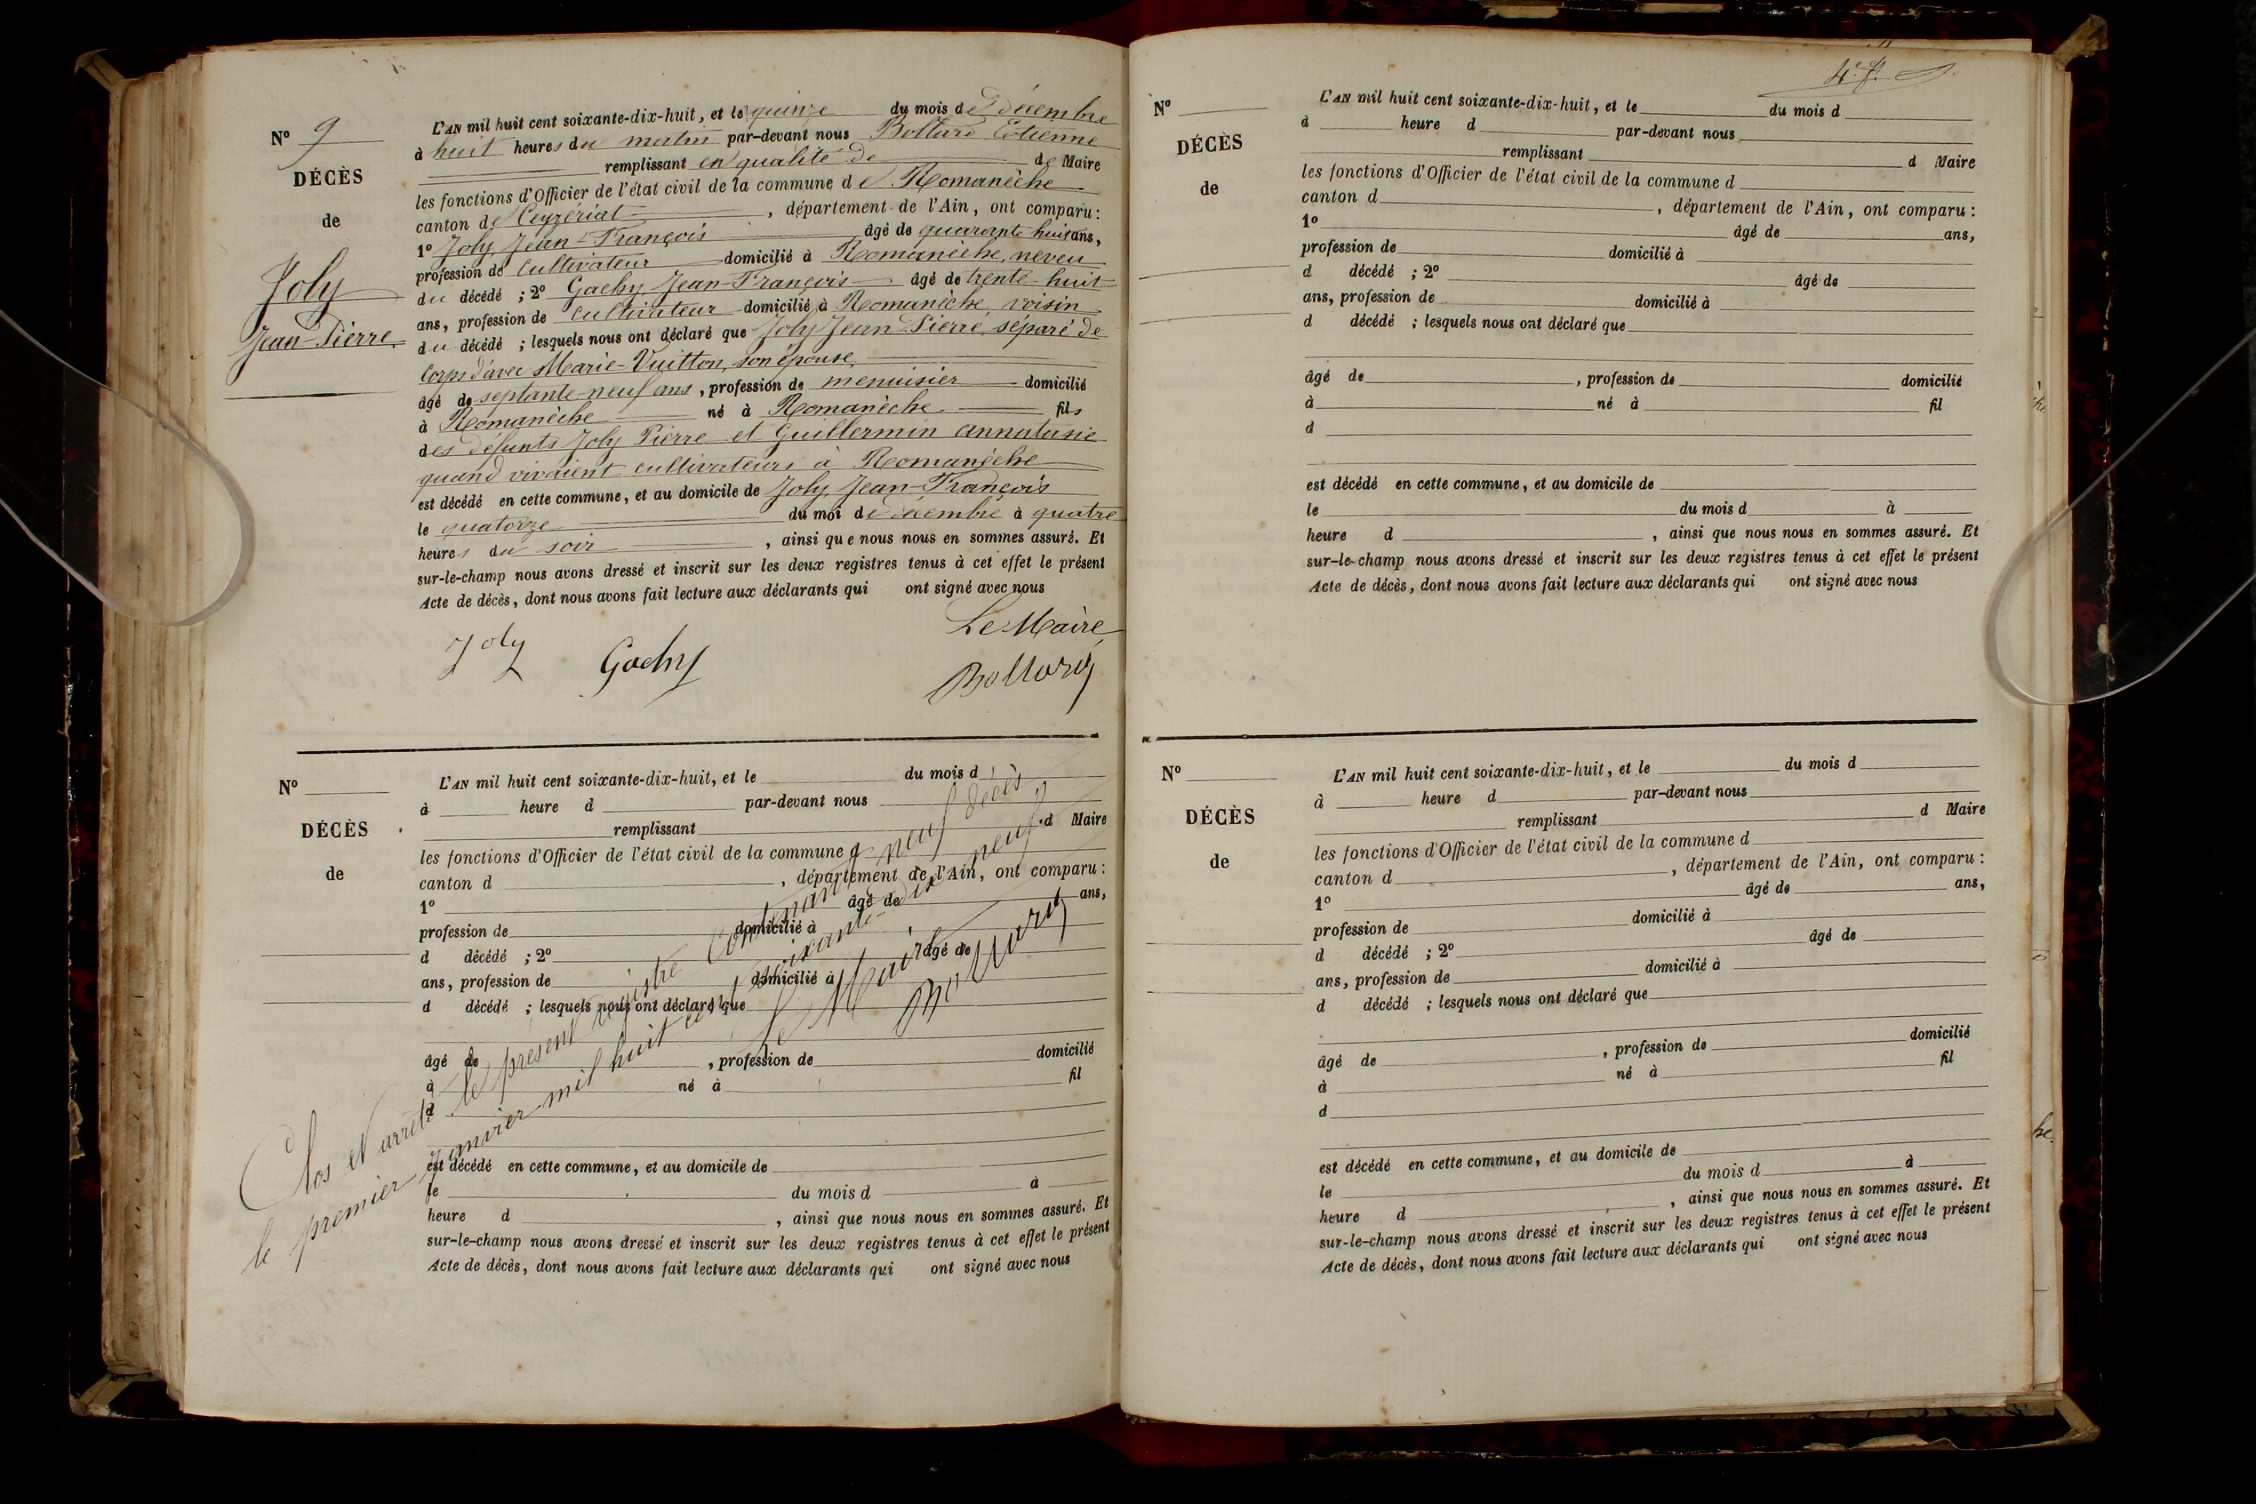 N° 9
DÉCÈS
de
Joly
Jean-Pierre
L'AN mil huit cent soixante-dix-huit, et le quinze du mois de décembre
à huit heures du matin par-devant nous Bollard Etienne
remplissant en qualité de de Maire
les fonctions d'Officier de l'état civil de la commune de Romanèche
canton de Ceyzériat, département de l'Ain, ont comparu :
1° Joly Jean-François âgé de quarante huit ans,
profession de cultivateur domicilié à Romanèche, neveu
du décédé ; 2° Gachy Jean-François âgé de trente-huit
ans, profession de cultivateur domicilié à Romanèche, voisin
du décédé ; lesquels nous ont déclaré que Joly Jean-Pierre, séparé de
corps d'avec Marie-Vuitton, son épouse,
âgé de septante-neuf ans, profession de menuisier domicilié
à Romanèche né à Romanèche fils
des défunts Joly Pierre et Guillermin annatasie
quand vivaient cultivateurs à Romanèche
est décédé en cette commune, et au domicile de Joly Jean-François
le quatorze du moi de décembre à quatre
heures du soir, ainsi que nous nous en sommes assuré. Et
sur-le-champ nous avons dressé et inscrit sur les deux registres tenus à cet effet le présent
Acte de décès, dont nous avons fait lecture aux déclarants qui ont signé avec nous
Le Maire,
Joly Gachy
N°
DÉCÈS
de
L'AN mil huit cent soixante-dix-huit, et le du mois d
à heure d par-devant nous
remplissant d Maire
les fonctions d'Officier de l'état civil de la commune d
canton d , département de l'Ain, ont comparu :
1° âgé de ans,
profession de domicilié à
d décédé ; 2° âgé de
ans, profession de domicilié à
d décédé ; lesquels nous ont déclaré que
âgé de , profession de domicilié
à né à fil
d
est décédé en cette commune, et au domicile de
le du mois d à
heure d , ainsi que nous nous en sommes assuré. Et
sur-le-champ nous avons dressé et inscrit sur les deux registres tenus à cet effet le présent
Acte de décès, dont nous avons fait lecture aux déclarants qui ont signé avec nous
Clos et arrêté le présent registre contenant neuf décès
le premier janvier mil huit cent soixante-dix neuf
Le Maire
N°
DÉCÈS
de
L'AN mil huit cent soixante-dix-huit, et le du mois d
à heure d par-devant nous
remplissant d Maire
les fonctions d'Officier de l'état civil de la commune d
canton d , département de l'Ain, ont comparu :
1° âgé de ans,
profession de domicilié à
d décédé ; 2° âgé de
ans, profession de domicilié à
d décédé ; lesquels nous ont déclaré que
âgé de , profession de domicilié
à né à fil
d
est décédé en cette commune, et au domicile de
le du mois d à
heure d , ainsi que nous nous en sommes assuré. Et
sur-le-champ nous avons dressé et inscrit sur les deux registres tenus à cet effet le présent
Acte de décès, dont nous avons fait lecture aux déclarants qui ont signé avec nous
N°
DÉCÈS
de
L'AN mil huit cent soixante-dix-huit, et le du mois d
à heure d par-devant nous
remplissant d Maire
les fonctions d'Officier de l'état civil de la commune d
canton d , département de l'Ain, ont comparu :
1° âgé de ans,
profession de domicilié à
d décédé ; 2° âgé de
ans, profession de domicilié à
d décédé ; lesquels nous ont déclaré que
âgé de , profession de domicilié
à né à fil
d
est décédé en cette commune, et au domicile de
le du mois d à
heure d , ainsi que nous nous en sommes assuré. Et
sur-le-champ nous avons dressé et inscrit sur les deux registres tenus à cet effet le présent
Acte de décès, dont nous avons fait lecture aux déclarants qui ont signé avec nous